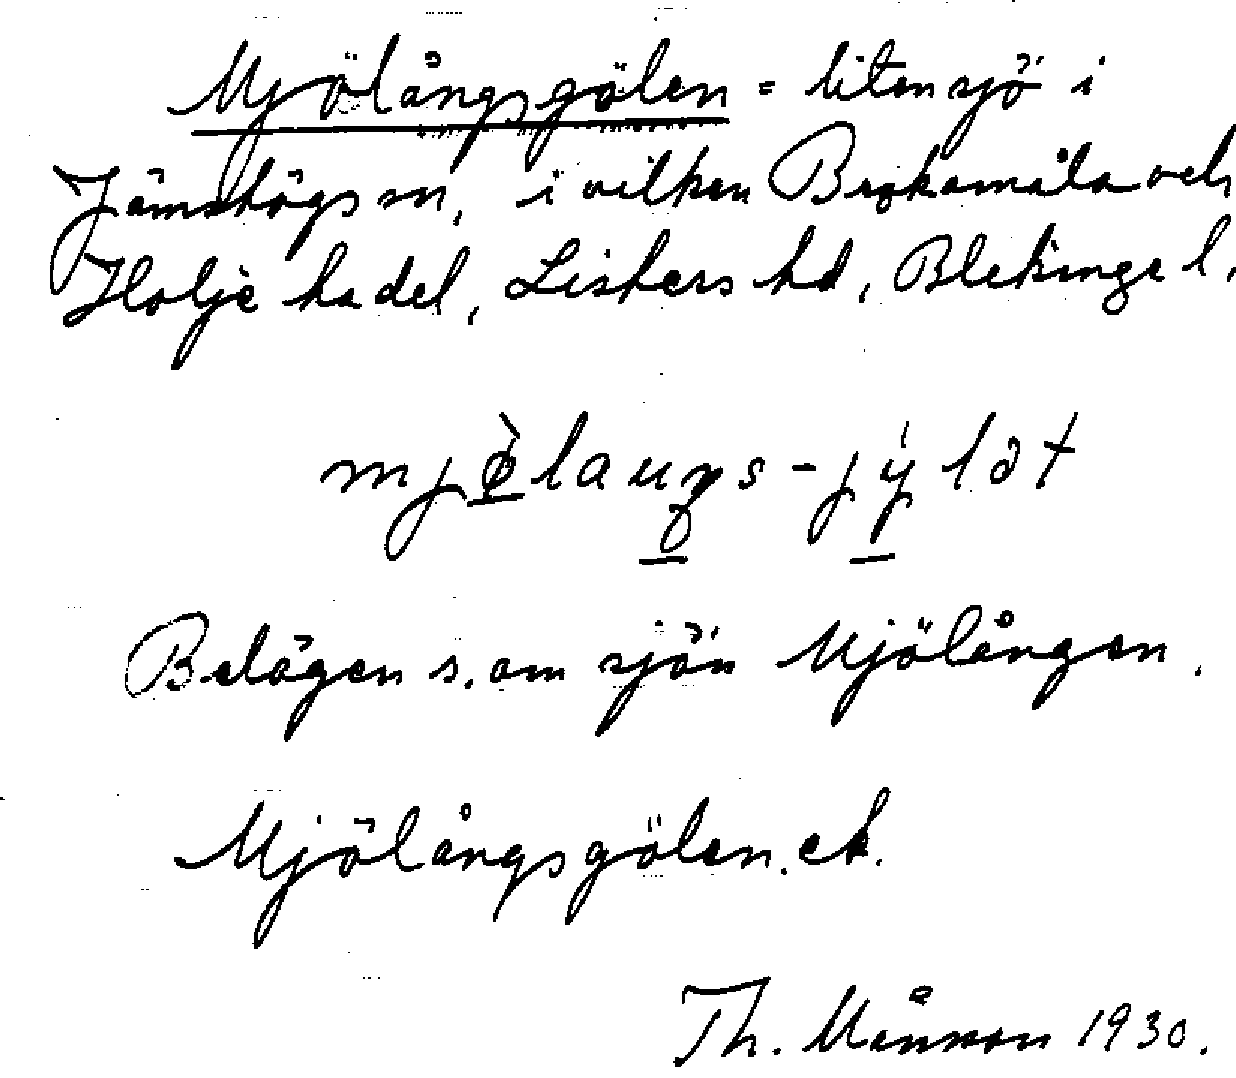 Mjölångsgölen = liten sjö i
Jämshögs sn, i vilken Brokamåla och
Holje ha del, Listers hd, Blekinge l.
Belägen s. om sjön Mjölången.
Mjölångsgölen. ek.
Th. Månsson 1930.